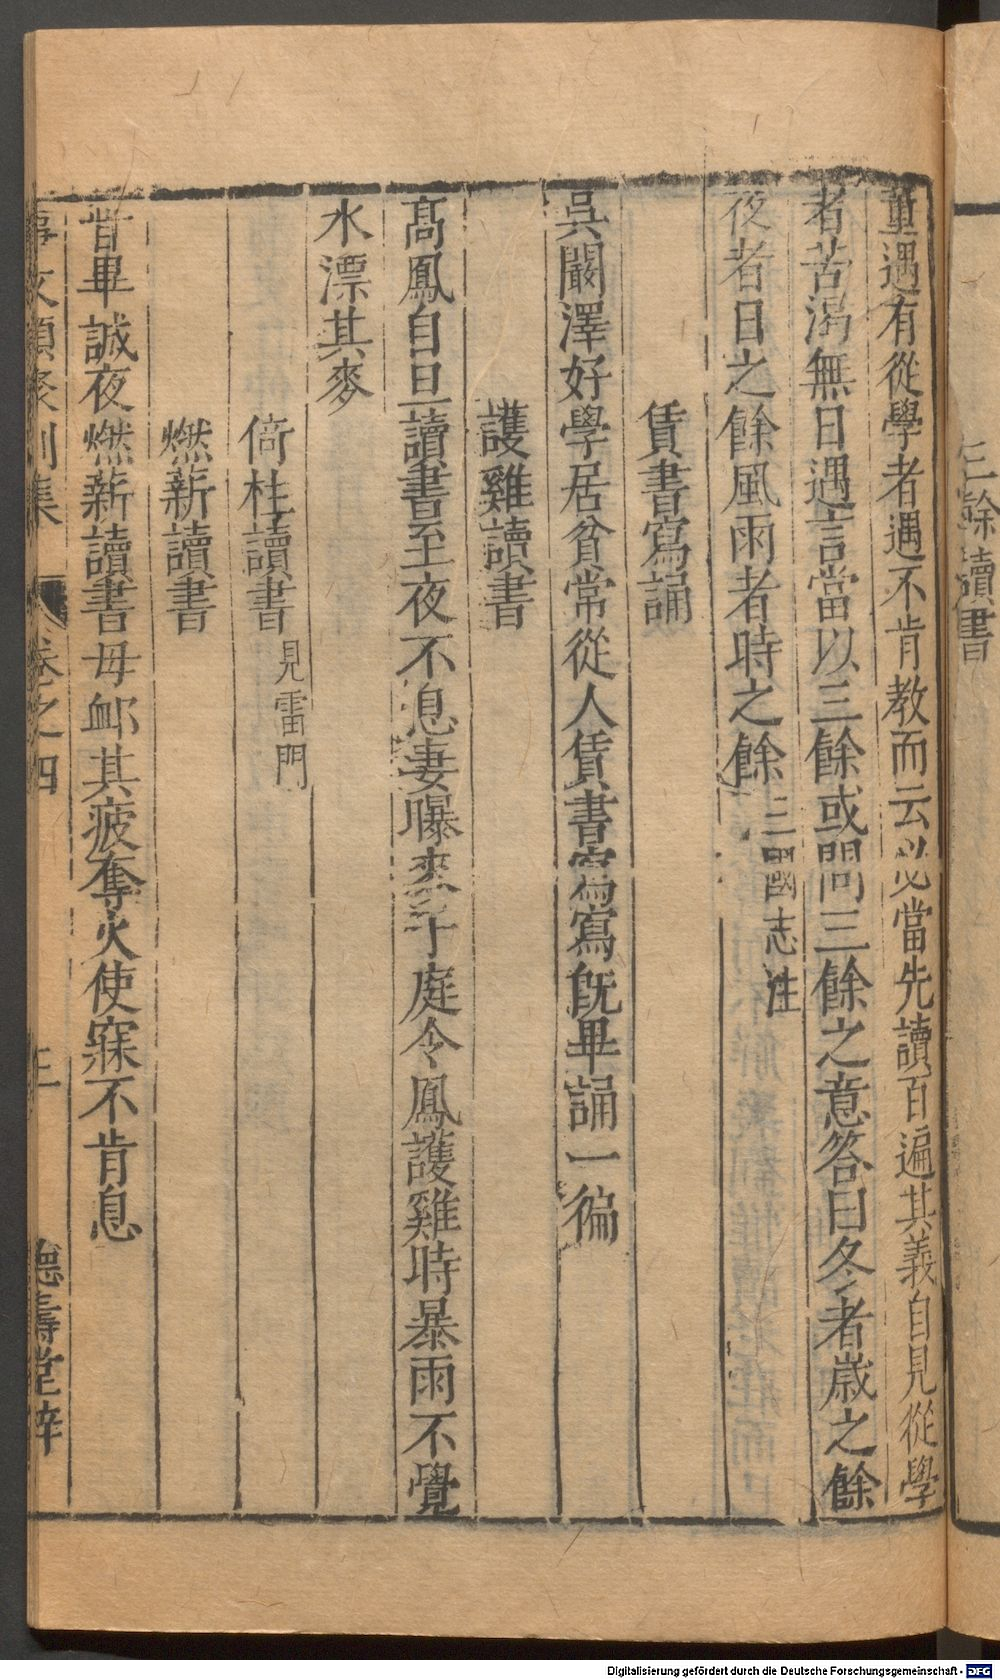 三餘讀書
董遇有從學者遇不肯教而云必當先讀百遍其義自見從學
者苦渴無日遇言當以三餘或問三餘之意答曰冬者歲之餘
夜者日之餘風雨者時之餘三國志注
賃書寫誦
吳嚴澤好學居貧常從人賃書寫寫旣畢誦一徧
護雞讀書
高鳳自旦讀書至夜不息妻曝麥于庭令鳳護雞時暴雨不覺
水漂其麥
倚柱讀書見雷門
燃薪讀書
昔畢誠夜燃薪讀書母卹其疲奪火使寐不肯息
事文類聚別集 卷之四 三 德壽堂梓
Digitalisierung gefördert durch die Deutsche Forschungsgemeinschaft - DFG